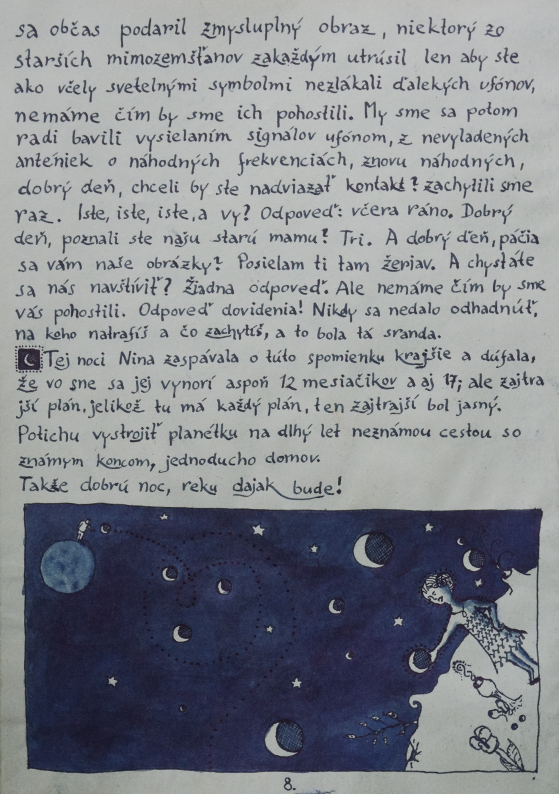 sa občas podaril zmysluplný obraz, niektorý zo
starších mimozemšťanov zakaždým utrúsil len aby ste
ako včely svetelnými symbolmi nezlákali ďalekých ufónov,
nemáme čím by sme ich pohostili. My sme sa potom
radi bavili vysielaním signálov ufónom, z nevyladených
anténiek o náhodných frekvenciách, znovu náhodných,
dobrý deň, chceli by ste nadviazať kontakt? zachytili sme
raz. Iste, iste, iste, a vy? Odpoveď: včera ráno. Dobrý
deň, poznali ste našu starú mamu? Tri. A dobrý ďeň, páčia
sa vám naše obrázky? Posielam ti tam ženjav. A chystáte
sa nás navštíviť? Žiadna odpoveď. Ale nemáme čím by sme
vás pohostili. Odpoveď dovidenia! Nikdy sa nedalo odhadnúť,
na koho natrafíš a čo zachytíš, a to bola tá sranda.
Tej noci Nina zaspávala o túto spomienku krajšie a dúfala,
že vo sne sa jej vynorí aspoň 12 mesiačikov a aj 17; ale zajtra
jší plán, jelikož tu má každý plán, ten zajtrajší bol jasný.
Potichu vystrojiť planétku na dlhý let neznámou cestou so
známym koncom, jednoducho domov.
Takže dobrú noc, reku dajak bude!
8.